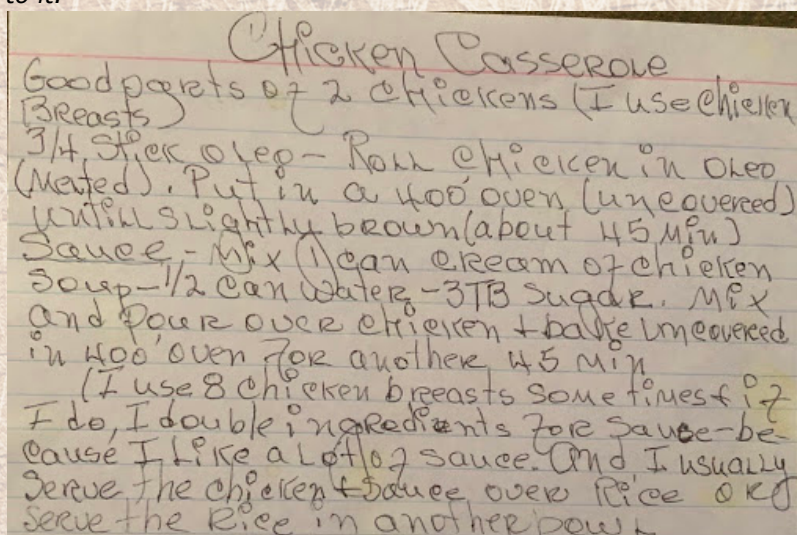 to it.
Chicken Casserole
Good parts of 2 chickens (I use chicken
Breasts)
3/4 stick oleo - Roll chicken in oleo
(melted). Put in a 400° oven (uncovered)
untill slightly brown (about 45 min)
Sauce - Mix (1) can cream of chicken
Soup - 1/2 can water - 3TB sugar. Mix
and pour over chicken + bake uncovered
in 400° oven for another 45 min
(I use 8 chicken breasts sometimes + if
I do, I double ingredients for sauce - be-
cause I like a lot of sauce. And I usually
serve the chicken + sauce over Rice or
serve the Rice in another bowl